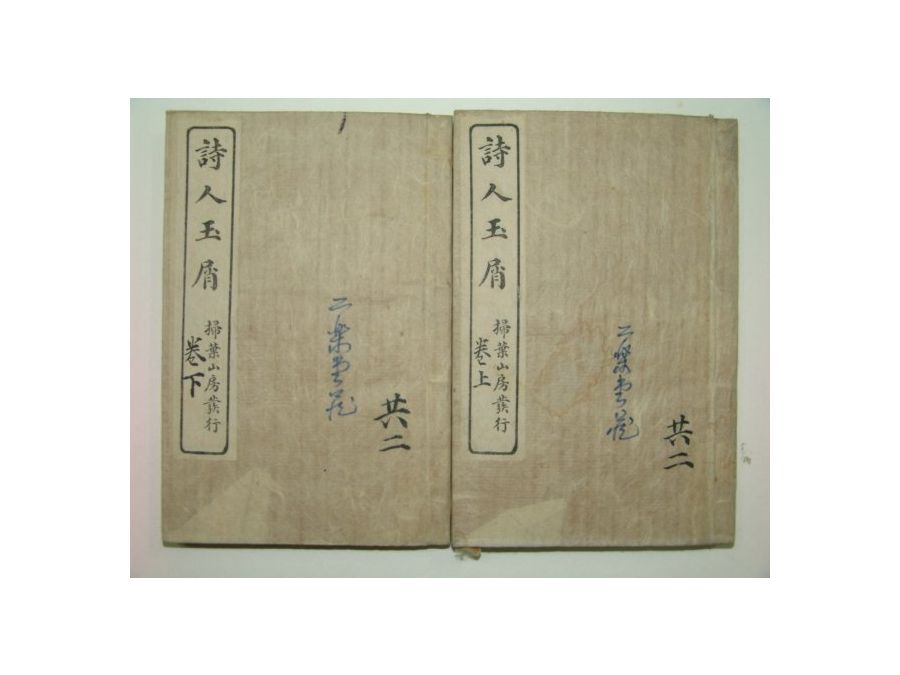 詩人玉屑
掃葉山房發行
卷上
二樂堂藏
共二
詩人玉屑
掃葉山房發行
卷下
二樂堂藏
共二